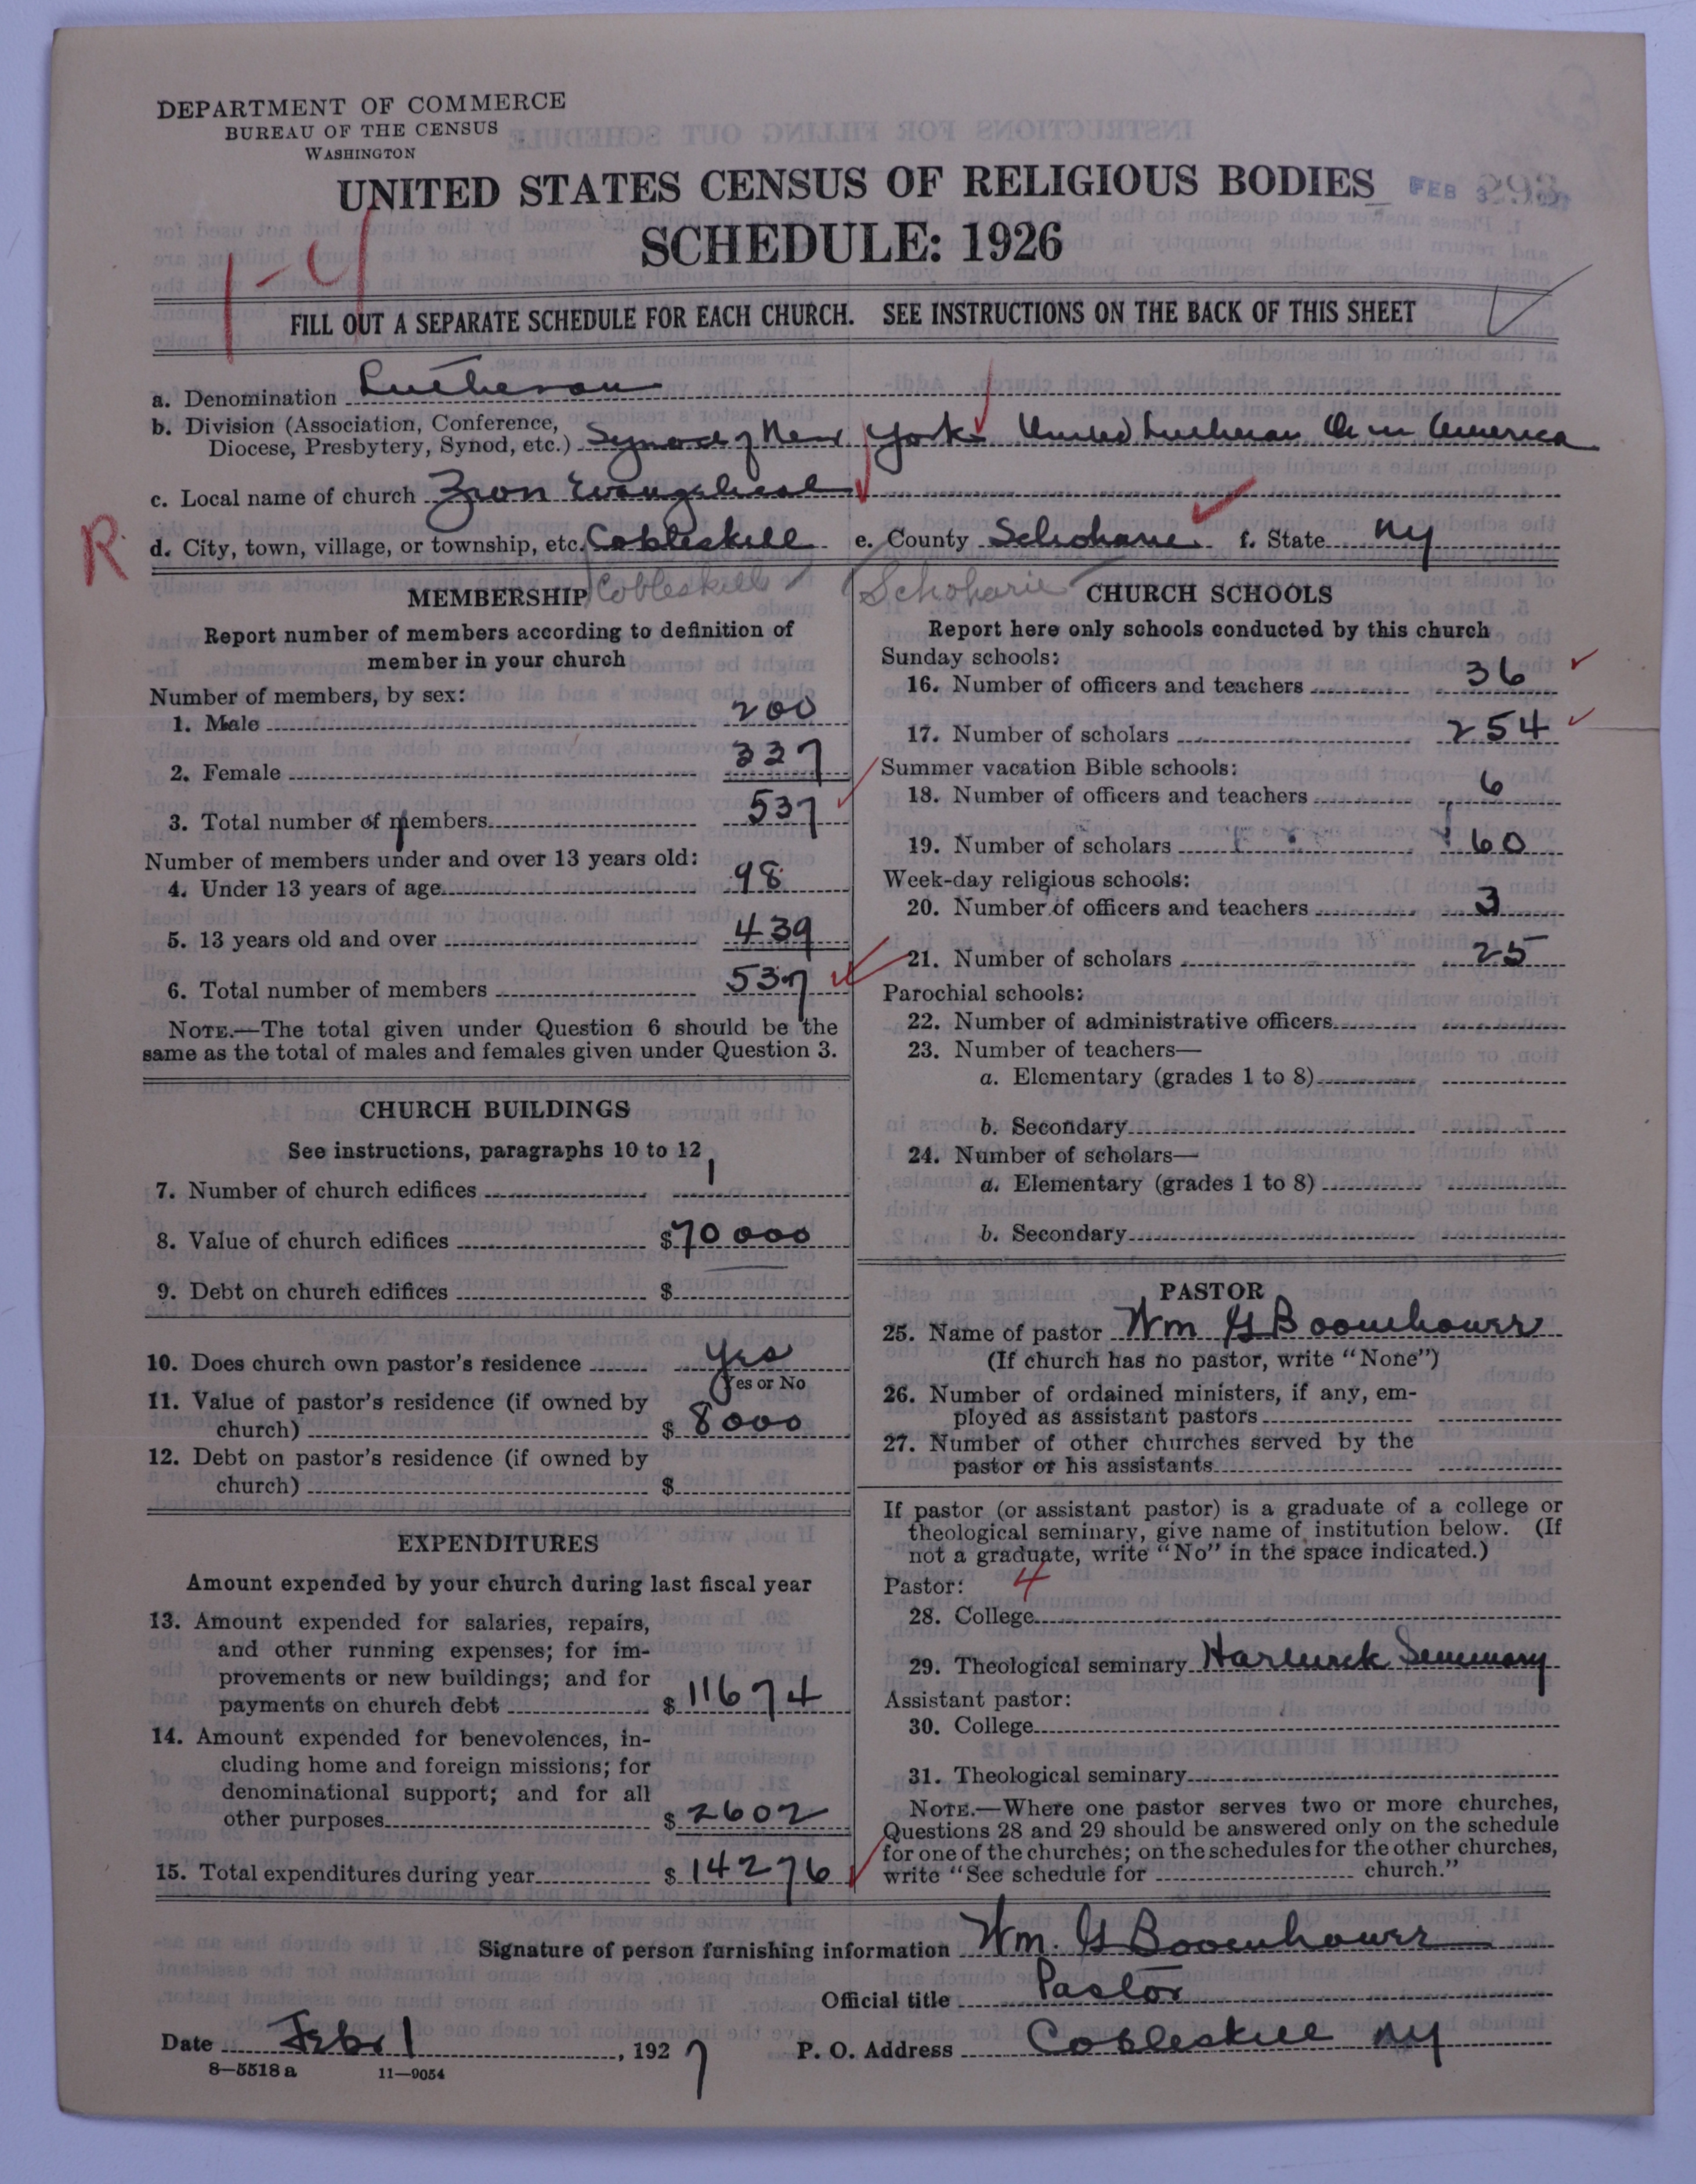 DEPARTMENT OF COMMERCE
BUREAU OF THE CENSUS
WASHINGTON
UNITED STATES CENSUS OF RELIGIOUS BODIES
FEB 3
SCHEDULE: 1926
1-4
FILL OUT A SEPARATE SCHEDULE FOR EACH CHURCH. SEE INSTRUCTIONS ON THE BACK OF THIS SHEET
a. Denomination Lutheran
b. Division (Association, Conference,
Diocese, Presbytery, Synod, etc.) Synod of New York United Lutheran Ch in America
c. Local name of church Zion Evangelical
R
d. City, town, village, or township, etc. Cobleskill e. County Schoharie f. State NY
Cobleskill Schoharie
MEMBERSHIP
Report number of members according to definition of
member in your church
Number of members, by sex:
1. Male 200
2. Female 337
3. Total number of members 537
Number of members under and over 13 years old:
4. Under 13 years of age 98
5. 13 years old and over 439
6. Total number of members 537
NOTE.—The total given under Question 6 should be the
same as the total of males and females given under Question 3.
CHURCH BUILDINGS
See instructions, paragraphs 10 to 12
7. Number of church edifices 1
8. Value of church edifices $70000
9. Debt on church edifices $
10. Does church own pastor's residence Yes
Yes or No
11. Value of pastor's residence (if owned by
church) $8000
12. Debt on pastor's residence (if owned by
church) $
EXPENDITURES
Amount expended by your church during last fiscal year
13. Amount expended for salaries, repairs,
and other running expenses; for im-
provements or new buildings; and for
payments on church debt $11674
14. Amount expended for benevolences, in-
cluding home and foreign missions; for
denominational support; and for all
other purposes $2602
15. Total expenditures during year $14276
CHURCH SCHOOLS
Report here only schools conducted by this church
Sunday schools:
16. Number of officers and teachers 36
17. Number of scholars 254
Summer vacation Bible schools:
18. Number of officers and teachers 6
19. Number of scholars 60
Week-day religious schools:
20. Number of officers and teachers 3
21. Number of scholars 25
Parochial schools:
22. Number of administrative officers
23. Number of teachers—
a. Elementary (grades 1 to 8)
b. Secondary
24. Number of scholars—
a. Elementary (grades 1 to 8)
b. Secondary
PASTOR
25. Name of pastor Wm G Boomhower
(If church has no pastor, write "None")
26. Number of ordained ministers, if any, em-
ployed as assistant pastors
27. Number of other churches served by the
pastor or his assistants
If pastor (or assistant pastor) is a graduate of a college or
theological seminary, give name of institution below. (If
not a graduate, write "No" in the space indicated.)
Pastor: 4
28. College
29. Theological seminary Hartwick Seminary
Assistant pastor:
30. College
31. Theological seminary
NOTE.—Where one pastor serves two or more churches,
Questions 28 and 29 should be answered only on the schedule
for one of the churches; on the schedules for the other churches,
write "See schedule for church."
Signature of person furnishing information Wm. G Boomhower
Official title Pastor
Date Feb 1, 1927 P. O. Address Cobleskill NY
8—5518 a 11—9054